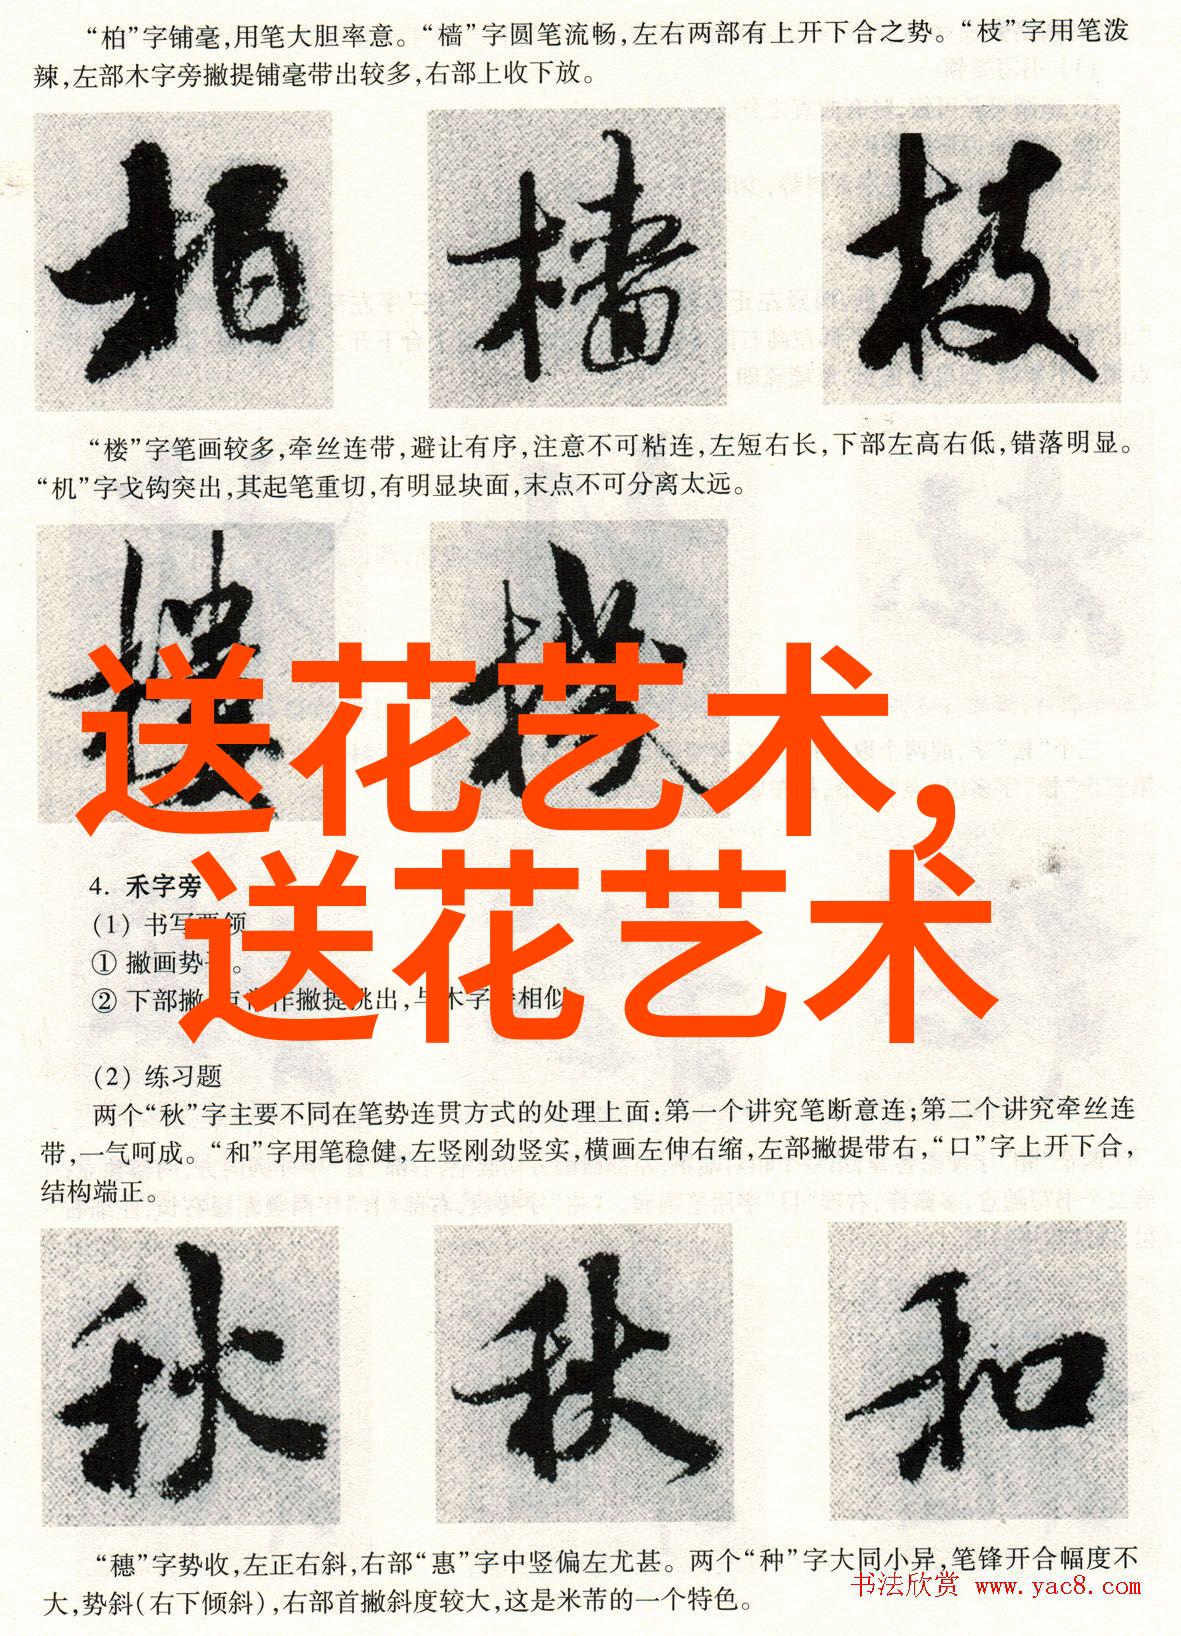 “柏”字铺毫,用笔大胆率意。“樯”字圆笔流畅,左右两部有上开下合之势。“枝”字用笔泼
辣,左部木字旁撇提铺毫带出较多,右部上收下放。
柏 樯 枝
“楼”字笔画较多,牵丝连带,避让有序,注意不可粘连,左短右长,下部左高右低,错落明显。
“机”字戈钩突出,其起笔重切,有明显块面,末点不可分离太远。
樓 機
送花艺术,
送花艺术
4. 禾字旁
(1) 书写要领
① 撇画势。
② 下部撇作撇提挑出,与木字旁相似
(2) 练习题
两个“秋”字主要不同在笔势连贯方式的处理上面:第一个讲究笔断意连;第二个讲究牵丝连
带,一气呵成。“和”字用笔稳健,左竖刚劲竖实,横画左伸右缩,左部撇提带右,“口”字上开下合,
结构端正。
秋 秋 和
“穗”字势收,左正右斜,右部“惠”字中竖偏左尤甚。两个“种”字大同小异,笔锋开合幅度不
大,势斜(右下倾斜),右部首撇斜度较大,这是米芾的一个特色。
书法欣赏 www.yac8.com